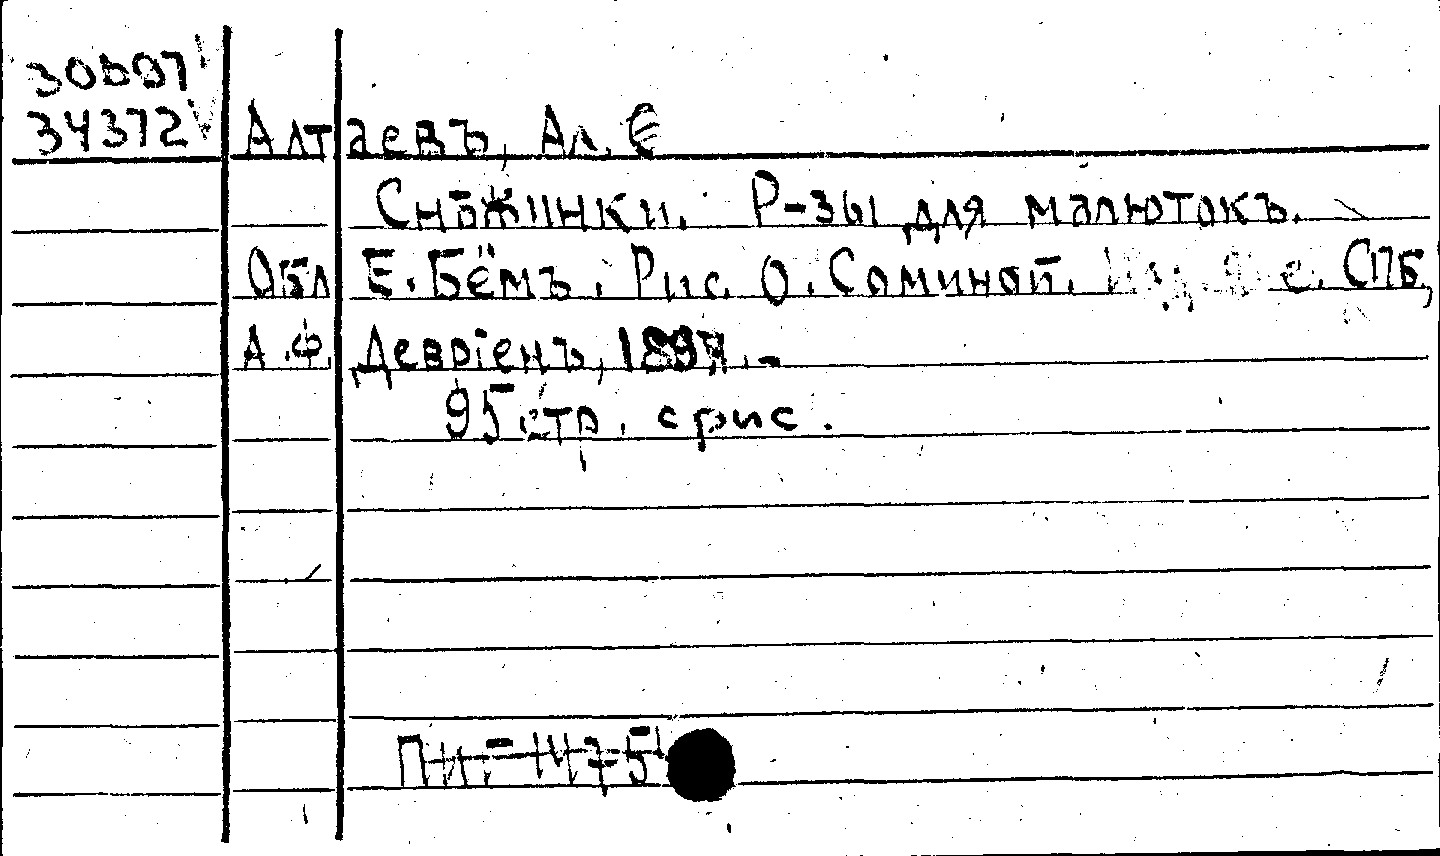 34372
Алтаевъ, Ал.
Снѣжинки. Р-зы для малютокъ.
Обл Е. Бёмъ. Рис. О. Соминой. СПб,
А.Ф. Девріенъ, 1897.-
95 стр. с рис.